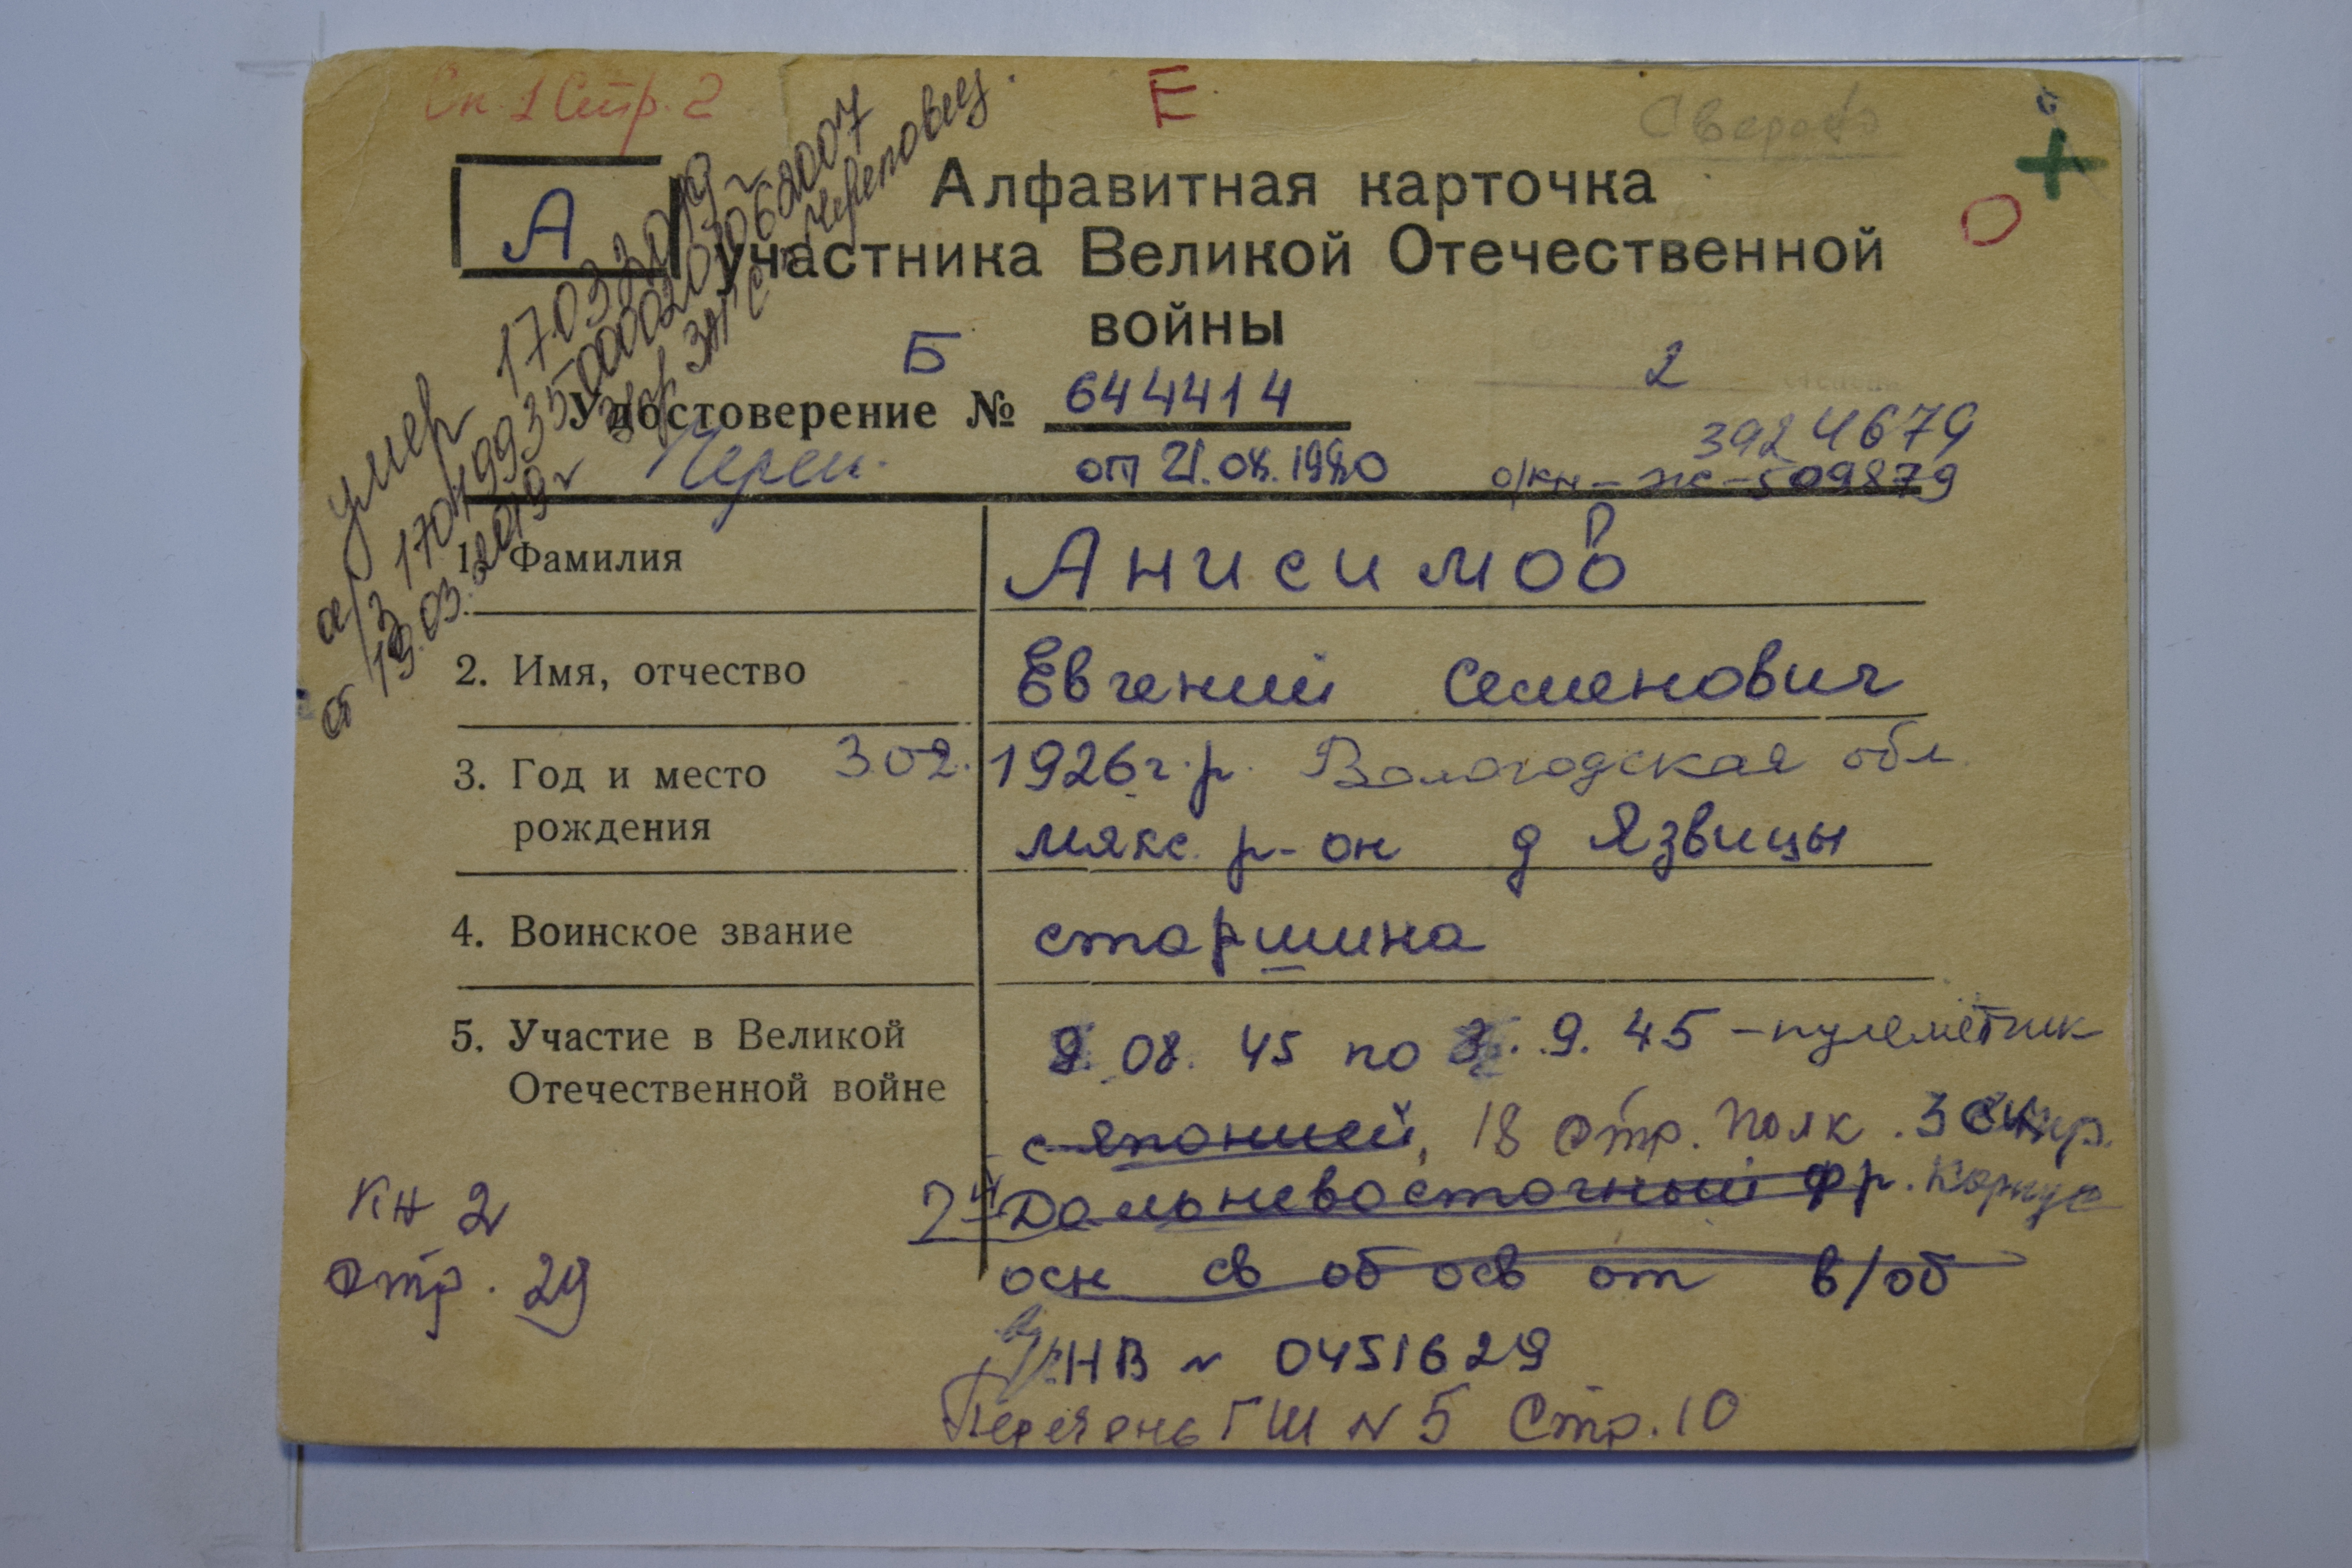 Сп 1 Стр. 2
Е
А
Алфавитная карточка
участника Великой Отечественной
войны
Б
2
Удостоверение № 644414
3924679
Череп. от 21.08.1980
о/кн - ЖС - 509879
умер 17.03.2019 г
а/з 170419935000020306
от 19.03.2019 г ЗАГС Череповец.
1. Фамилия Анисимов
2. Имя, отчество Евгений Семенович
3. Год и место 302. 1926 г.р. Вологодская обл
рождения мякс. р-он д Язвицы
4. Воинское звание старшина
5. Участие в Великой 9.08.45 по 3.9.45 - пулемётчик
Отечественной войне
с японией, 18 стр. полк.
2й Дальневосточный фр. корпус
осн св об осв от в/об
НВ № 0451629
Перечень ГШ N 5 Стр. 10
Кн 2
стр. 29